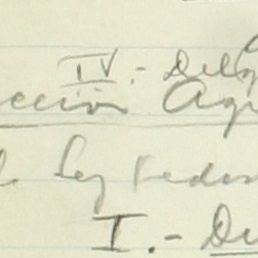 IV.- Deleg
ección Agr
Ley Feder
I.- De